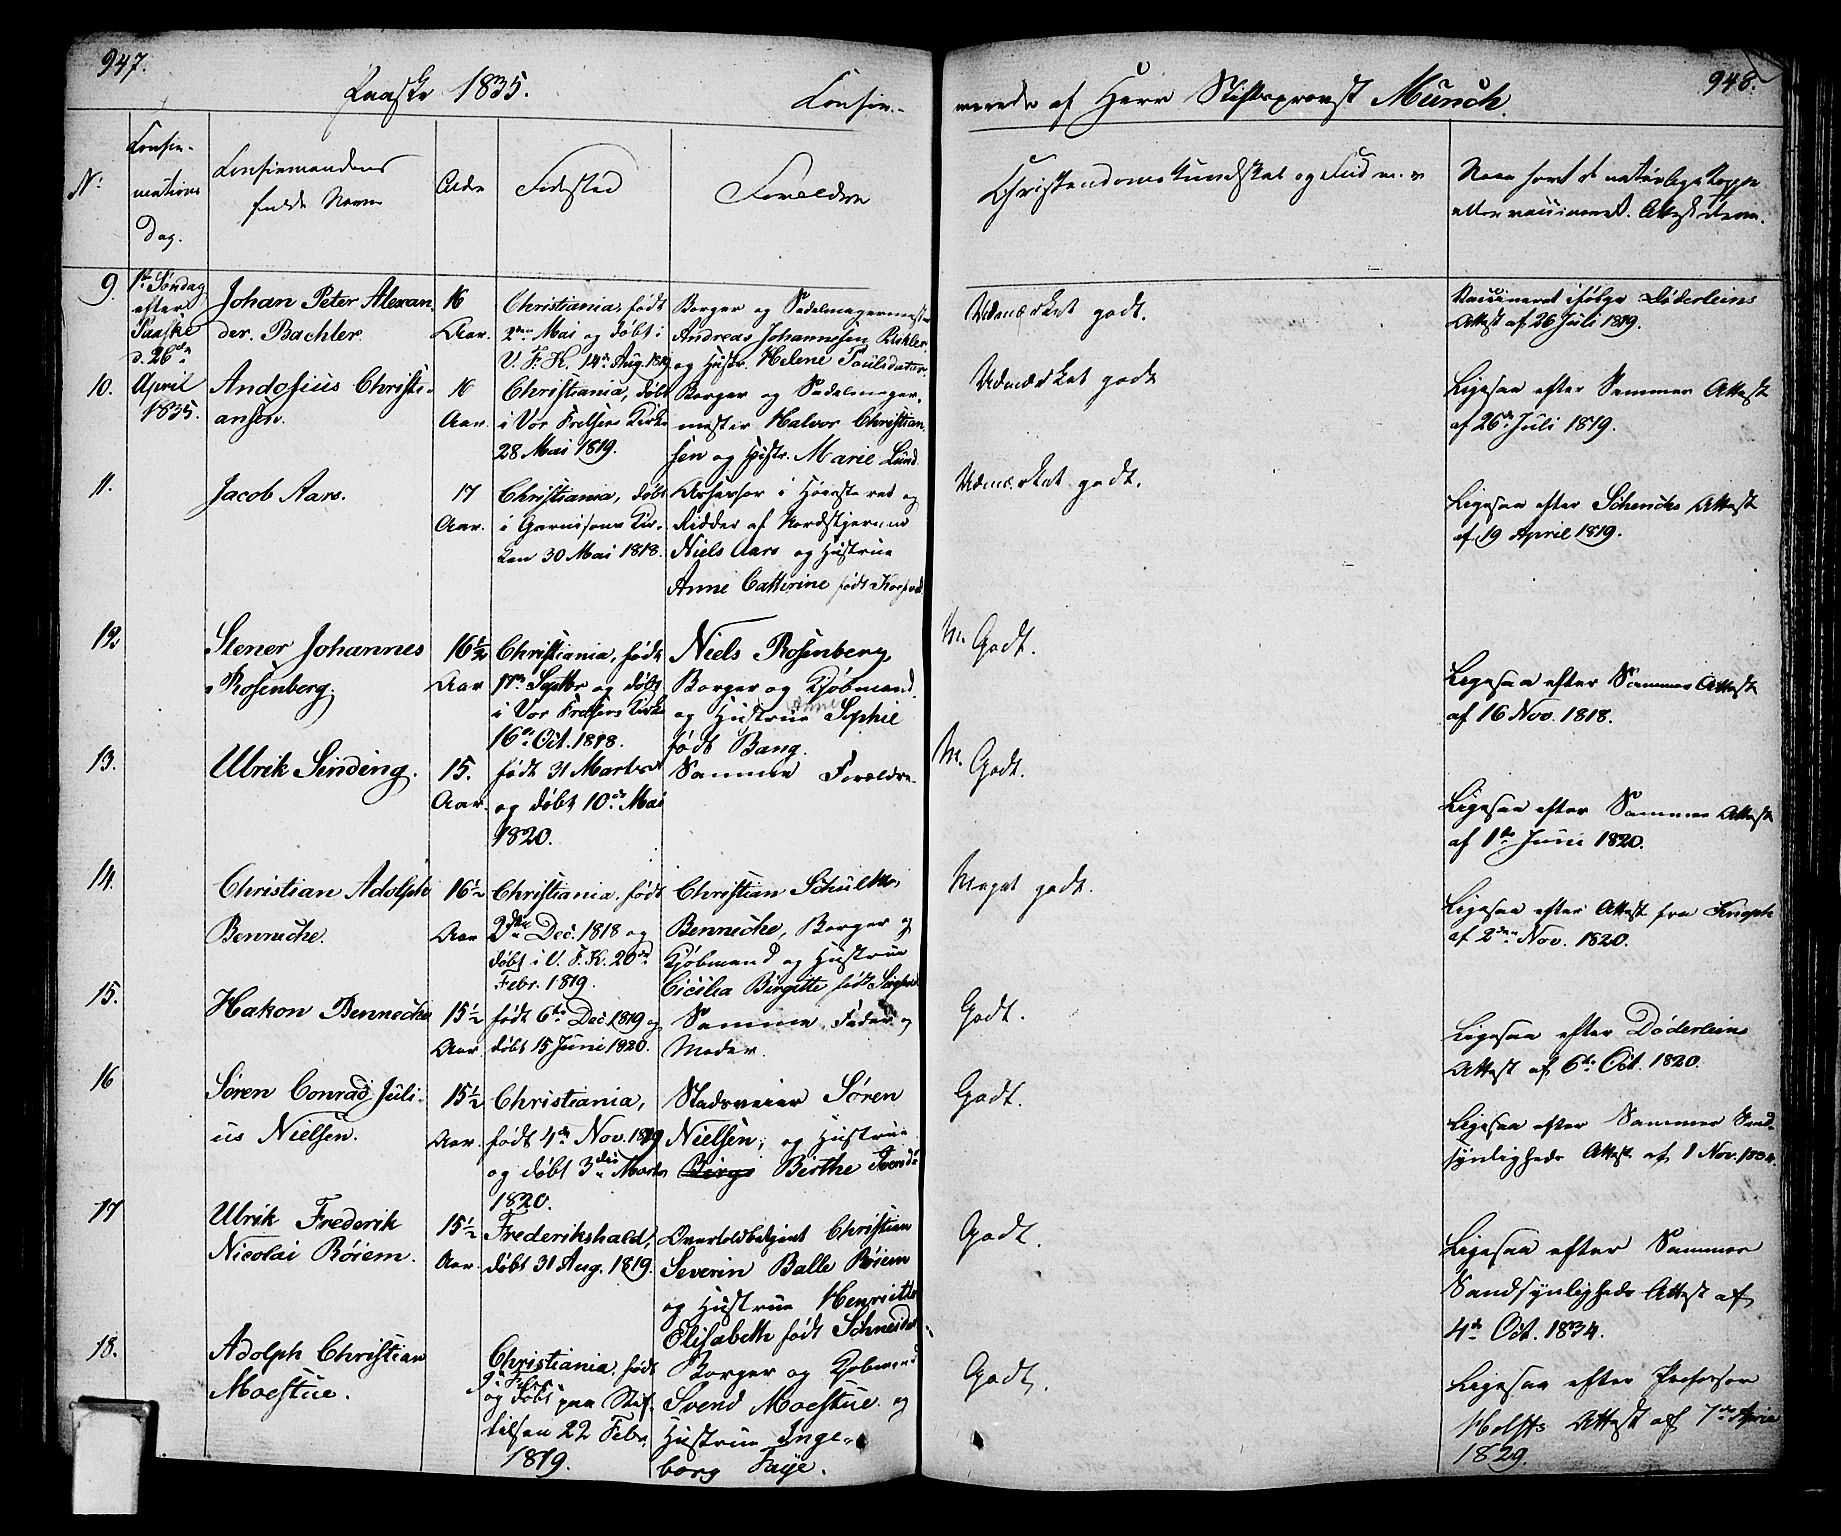 947.
Paaske 1835.
Confir-
merede af Herr Stiftsprovst Munch.
948.
No.
Confir-
mations
Dag.
Confirmandens
fulde Navn
Alder
Fødested
Forældre
Christendoms Kundskab og Flid m. v
Naar havt de naturlige Kopper
eller vaccineret. Attest derom.
9.
1ste Søndag
efter
Paaske
d. 26de
April
1835.
Johan Peter Alexan
der. Bachler.
16
Aar.
Christiania, født
2den Mai og døbt i
V. F. K. 14de Aug. 1819
Borger og Sadelmagermester
Andreas Johannesen
og Hustr. Helene Poulsdatter.
Udmærket godt.
Vaccineret ifølge Døderleins
Attest af 26 Juli 1819.
10.
Andosius Christi-
ansen.
16
Aar.
Christiania, døbt
i Vor Frelsers Kirke
28 Mai 1819.
Borger og Sadelmager-
mester Halvor Christian-
sen og Hustr. Marie Lund
Udmærket godt
Ligesaa efter Sammes Attest
af 26de Juli 1819.
11.
Jacob Aars.
17
Aar.
Christiania, døbt
i Garnisons Kir-
ken 30 Mai 1818.
Assessor i Høieste ret og
Ridder af Nordstjernen
Niels Aars og Hustrue
Anne Catterine født
Udmærket godt.
Ligesaa efter Schencks Attest
af 19 April 1819.
12.
Stener Johannes
Rosenberg.
16 1/2
Aar
Christiania, født
17de Septbr og døbt
i Vor Frelsers Kirke
16de Oct. 1818.
Niels Rosenberg,
Borger og Kjøbmand
og Hustrue Anne Sophie
født Bang.
M. Godt.
Ligesaa efter Sammes Attest
af 16 Nov. 1818.
13.
Ulrik Sinding.
15.
Aar.
født 31 Marts
og døbt 10de Mai
1820.
Samme Forældre
M. Godt.
Ligesaa efter Sammes Attest
af 1ste Juni 1820.
14.
Christian Adolph
Benneche.
16 1/2
Aar
Christiania, født
2den Dec. 1818 og
døbt i V. F. K. 20de
Febr. 1819.
Christian
Benneche, Borger og
Kjøbmand og Hustrue
Cicilia Birgitte født
Meget godt.
Ligesaa efter Attest fra
af 2den Nov. 1820.
15.
Hakon Benneche
15 1/2
Aar
født 6te Dec 1819 og
døbt 15 Juni 1820.
Samme Fader og
Moder.
Godt.
Ligesaa efter Døderleins
Attest af 6te Oct. 1820.
16
Søren Conrad Juli-
us Nielsen.
15 1/2
Aar.
Christiania,
født 4de Nov. 1819
og døbt 3die Marts
1820.
Stadsveier Søren
Nielsen, og Hustrue
Birthe
Godt.
Ligesaa efter Sammes Sand-
synligheds Attest af 1 Nov. 1834.
17
Ulrik Frederik
Nicolai Röiem.
15 1/2
Aar.
Frederikshald,
døbt 31 Aug. 1819.
Overtoldbetjent Christian
Severin Balle Röiem
og Hustrue Henriette
Elisabeth født Schneider.
Godt.
Ligesaa efter Sammes
Sandsynligheds Attest af
4de Oct. 1834.
18.
Adolph Christian
Moestue.
Christiania, født
og døbt paa Stif-
telsen 22 Febr.
1819.
Borger og Kjøbmand
Svend Moestue og
Hustrue Inge-
borg Faye.
Godt.
Ligesaa efter Professor
Holsts Attest af 7de April
1829.